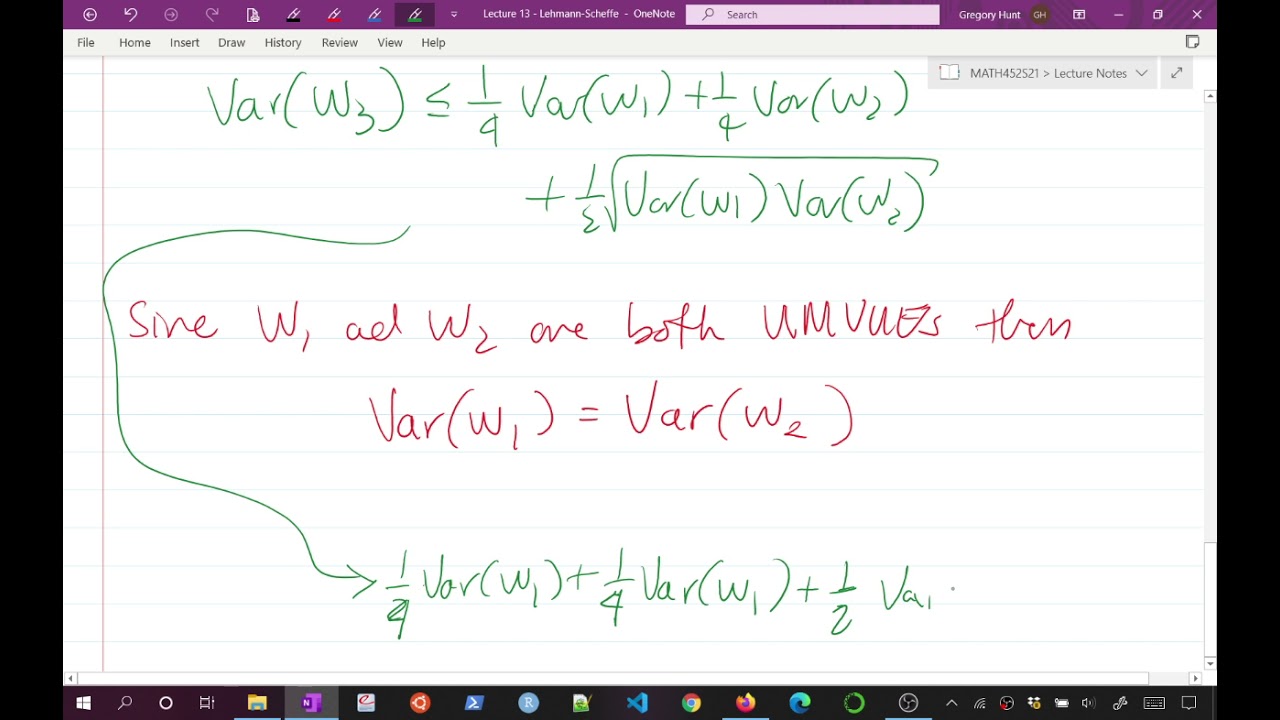 Lecture 13 - Lehmann-Scheffe - OneNote
Search
Gregory Hunt GH
File Home Insert Draw History Review View Help
MATH452S21 > Lecture Notes
Var(W₃) ≤ 1/4 Var(W₁) + 1/4 Var(W₂)
+ 1/2 √Var(W₁) Var(W₂)
Sine W₁ ad W₂ are both UMVUEs then
Var(W₁) = Var(W₂)
1/4 Var(W₁) + 1/4 Var(W₁) + 1/2 Va